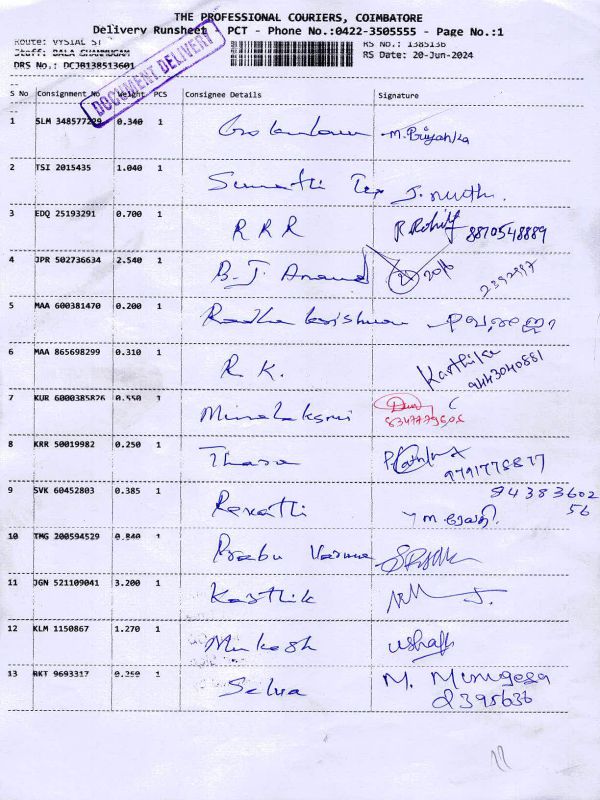 THE PROFESSIONAL COURIERS, COIMBATORE
Delivery Runsheet PCT - Phone No.:0422-3505555 - Page No.:1
Route: VYSIAL ST RS No.: 1385136
Staff: BALA SHANMUGAM RS Date: 20-Jun-2024
DRS No.: DCJB138513601
DOCUMENT DELIVERY
S No Consignment No Weight PCS Consignee Details Signature
1 SLM 348577229 0.340 1 M. Priyanka
2 TSI 2015435 1.040 1 Sumathi Tex
3 EDQ 25193291 0.700 1 R R R R Rohit 8870548889
4 JPR 502736634 2.540 1 B. J. Anand 2392997
5 MAA 600381470 0.200 1 Radha krishnan
6 MAA 865698299 0.310 1 R K. Karthika 9443040881
7 KUR 6000385826 0.550 1 Minalaksmi
8 KRR 50019982 0.250 1 Thara 9791776877
9 SVK 60452803 0.385 1 Revathi 94383602
56
10 TMG 200594529 0.840 1 Prabu Varma
11 JGN 521109041 3.200 1 Karthik
12 KLM 1150867 1.270 1 Mukesh
13 RKT 9693317 0.250 1 Selva M. Murugesa
2395636